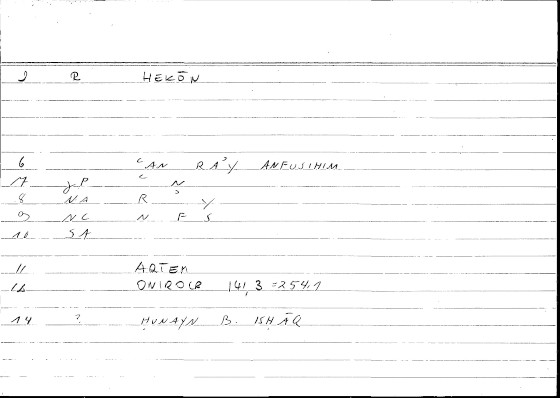 2 R HEKŌN
6 ʿAN RAʾY ANFUSIHIM
17 gP ʿ N
8 NA R ʾ Y
9 NC N F S
10 SA
11 ARTEM
12 ONIROCR 141,3 =254.1
14 ? ḤUNAYN B. ISḤĀQ